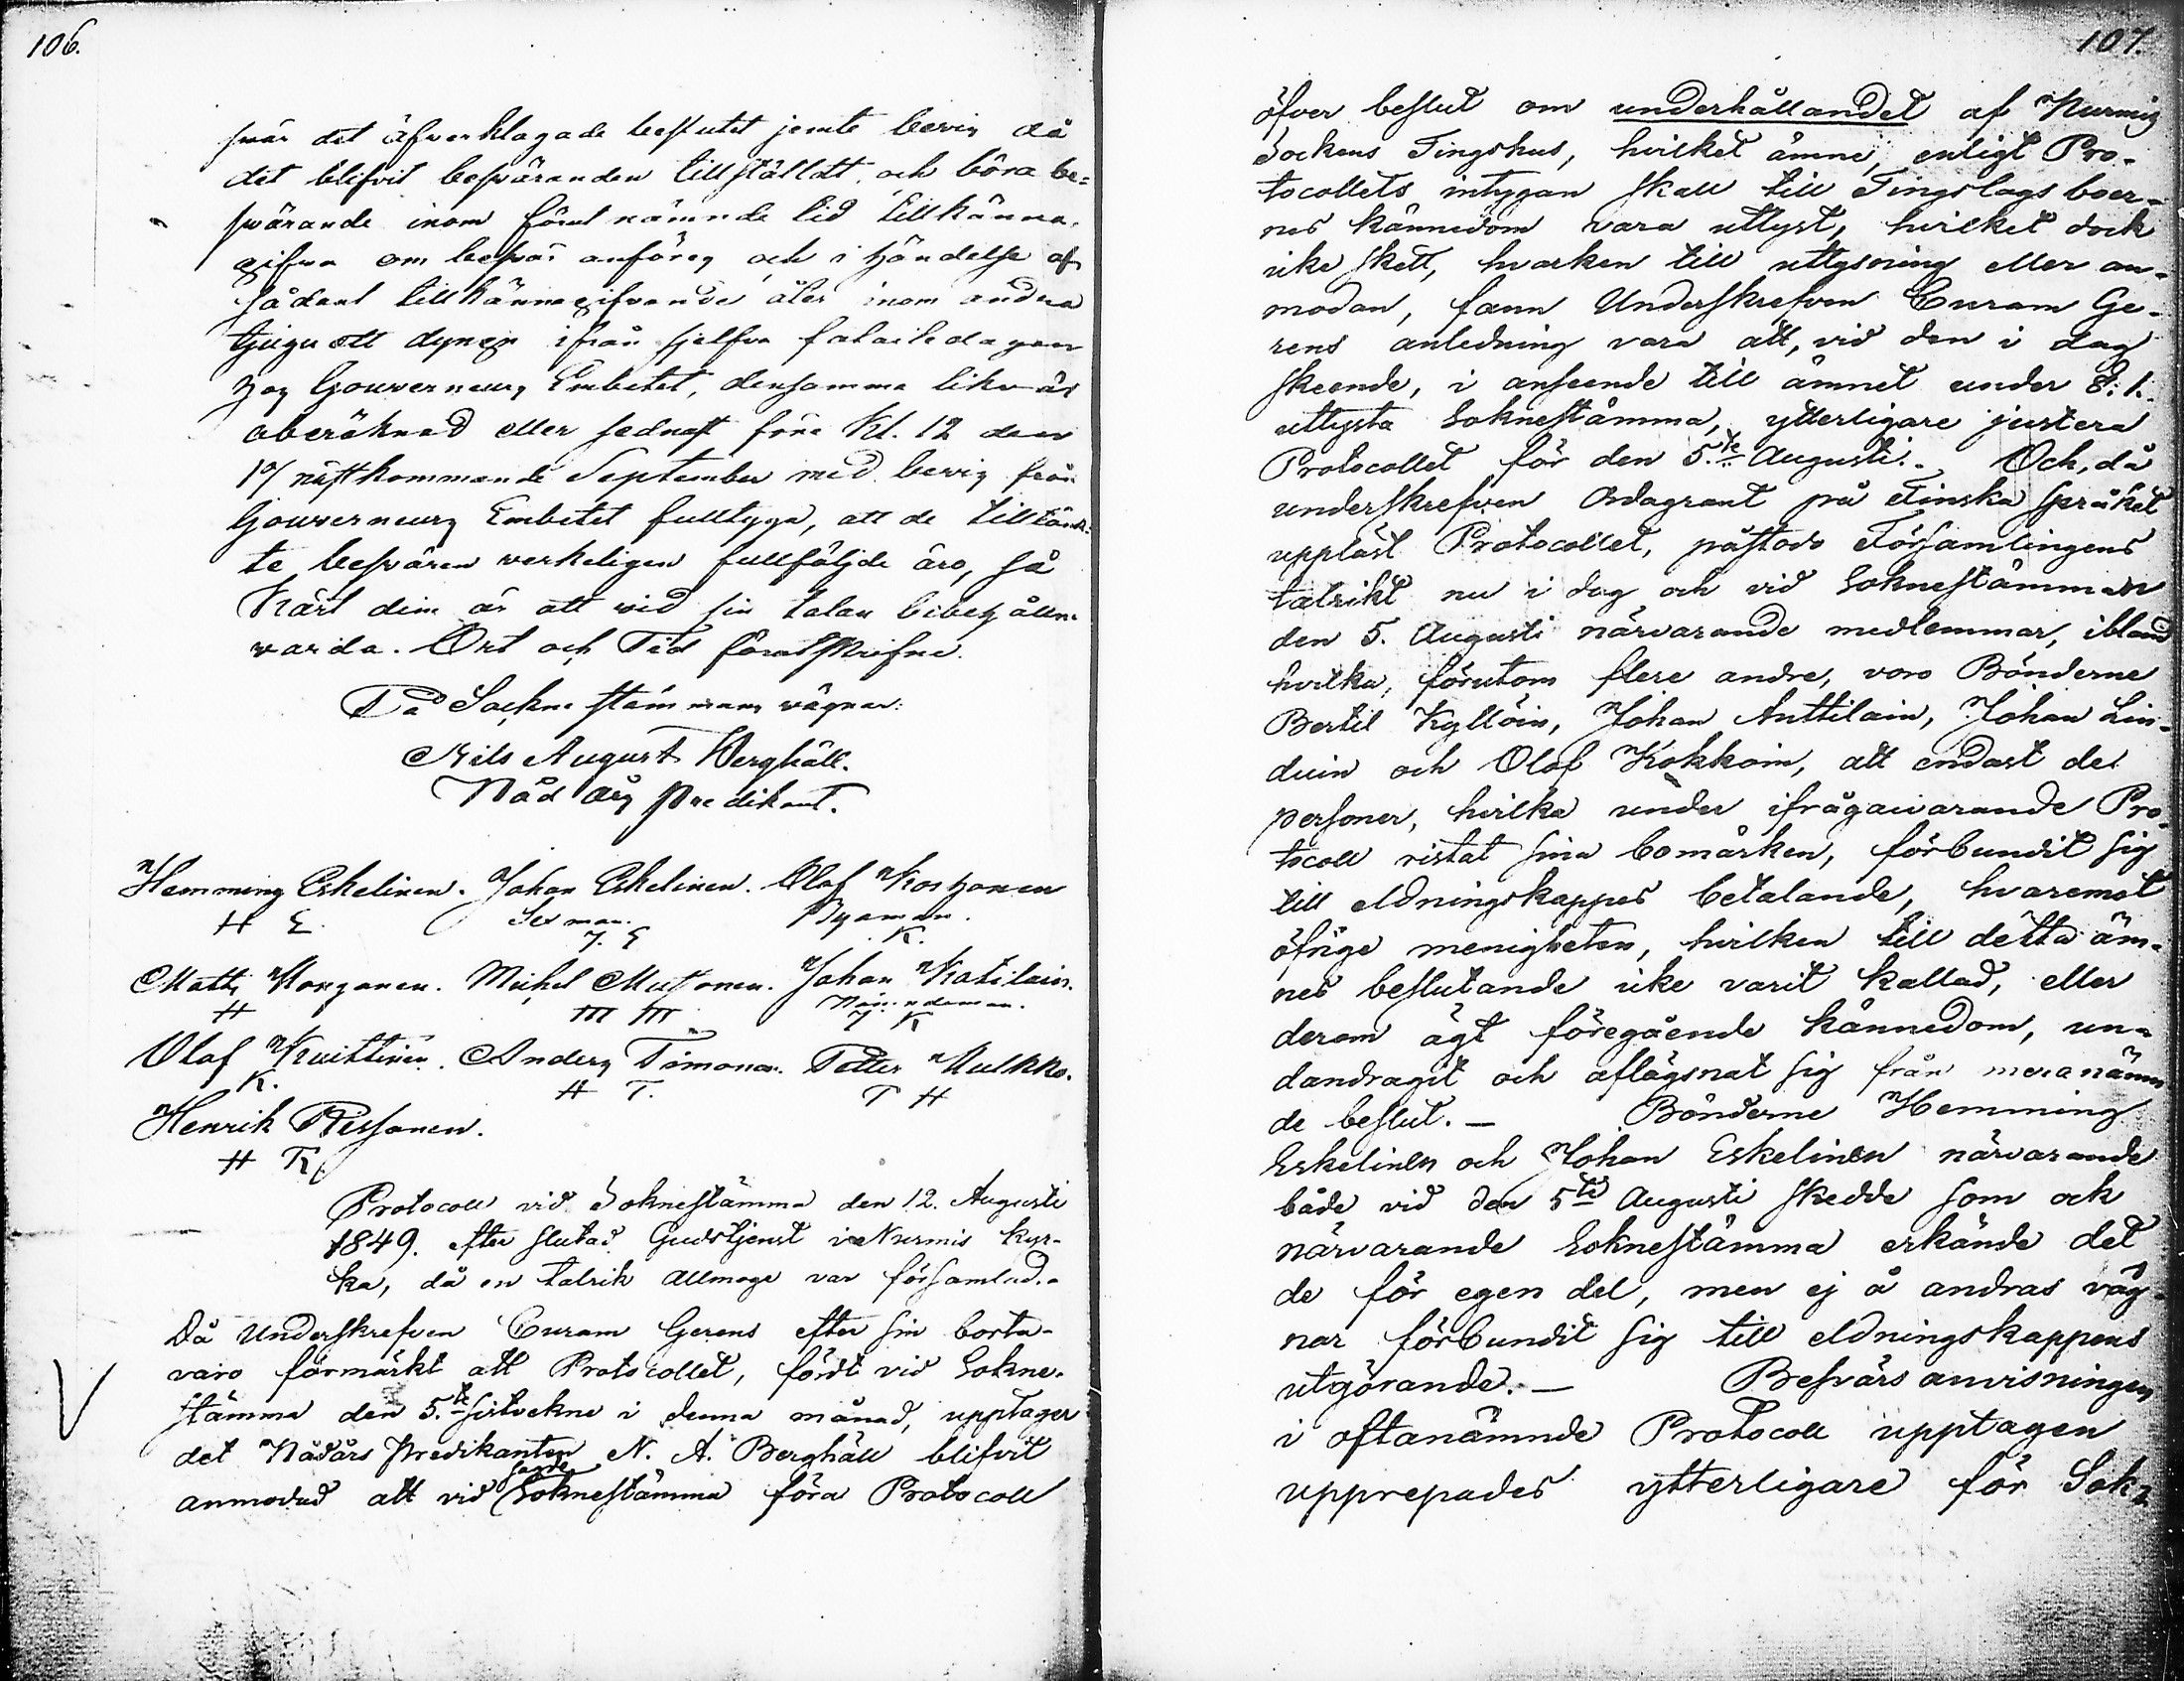 106.
svär det öfverklagade beslutet jemte bevis då
det blifvit besväranden tillställdt, och böra be=
svärande inom förut nämnde tid tillkänna-
gifva om besvär anföres och i händelse af
sådant tillkännagifvande åter inom andra
tjugu ett dygn ifrån sjelfva fataliedagen
hos Gouverneurs Embetet, densamma likväl
oberäknad eller sednast före Kl. 12 den
10/ nästkommande September med bevis från
Gouverneurs Embetet fulltyga, att de tilltänk-
te besvären verkeligen fullföljde äro, så
kärt dem är att vid sin talan bibehållne
varda. Ort och Tid förutskrifne.
På Sockne stämmans vägnar:
Nils August Berghäll.
Nåd års Predikant.
Hemming Eskelinen. Johan Eskelinen. Olaf Korhonen
H E. Sexman. Byaman.
J. E K.
Matts Horganen. Michel Mustonen. Johan Katilain.
H m m Nämndeman.
J K
Olaf Kuittinen. Anders Timonen. Petter Mulkko.
K. H T. P H
Henrik Ressonen.
H R.
Protocoll vid Soknestämma den 12. Augusti
1849. efter slutad Gudstjenst i Nurmis kyr-
ka, då en talrik allmoge var församlad.-
Då Underskrefven Curam Gerens efter sin borta-
varo förmärkt att Protocollet, fördt vid Sokne-
stämma den 5.te sistvekne i denna månad, upptager
det Nådårs Predikanten N. A. Berghäll blifvit
sagde
anmodad att vid Soknestämma föra Protocoll
107.
öfver beslut om underhållandet af Nurmis
Sockens Tingshus, hvilket ämne, enligt Pro-
tocollets intygan skall till Tingslags boer-
nes kännedom vara utlyst, hvilket dock
icke skett, hvarken till utlysning eller an-
modan, fann Underskrefven Curam Ge-
rens anledning vara att, vid den i dag
skeende, i anseende till ämnet under §: 1.
utlysta Soknestämma, ytterligare justera
Protocollet för den 5.te Augusti.- Och, då
underskrefven Ordagrant på Finska Språket
uppläst Protocollet, påstodo Församlingens
talrikt nu i dag och vid Soknestämman
den 5. Augusti närvarande medlemmar, ibland
hvilka, förutom flere andre, voro Bönderne
Bertil Kyllöin, Johan Anttilain, Johan Lin-
duin och Olof Kokkoin, att endast de
personer, hvilka under ifrågavarande Pro-
tocoll ristat sina bomärken, förbundit sig
till eldningskappes betalande, hvaremot
öfrige menigheten, hvilken till detta äm-
nes beslutande icke varit kallad, eller
derom ägt föregående kännedom, un-
dandragit och aflägsnat sig från meranämn
de beslut. – Bönderne Hemming
Eskelinen och Johan Eskelinen närvarande
både vid den 5te Augusti skedde som ock
närvarande Soknestämma erkände det
de för egen del, men ej å andras väg-
nar förbundit sig till eldningskappens
utgörande. – Besvärs anvisningen
i oftanämnde Protocoll upptagen
upprepades ytterligare för Sok-